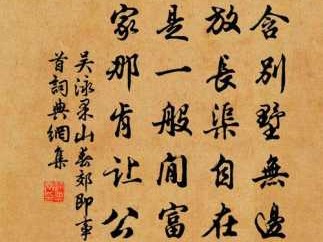 含别墅無邊
放長渠自在
是一般閒富
家那肯讓公
吴泳果山春郊即事
首詞典網集